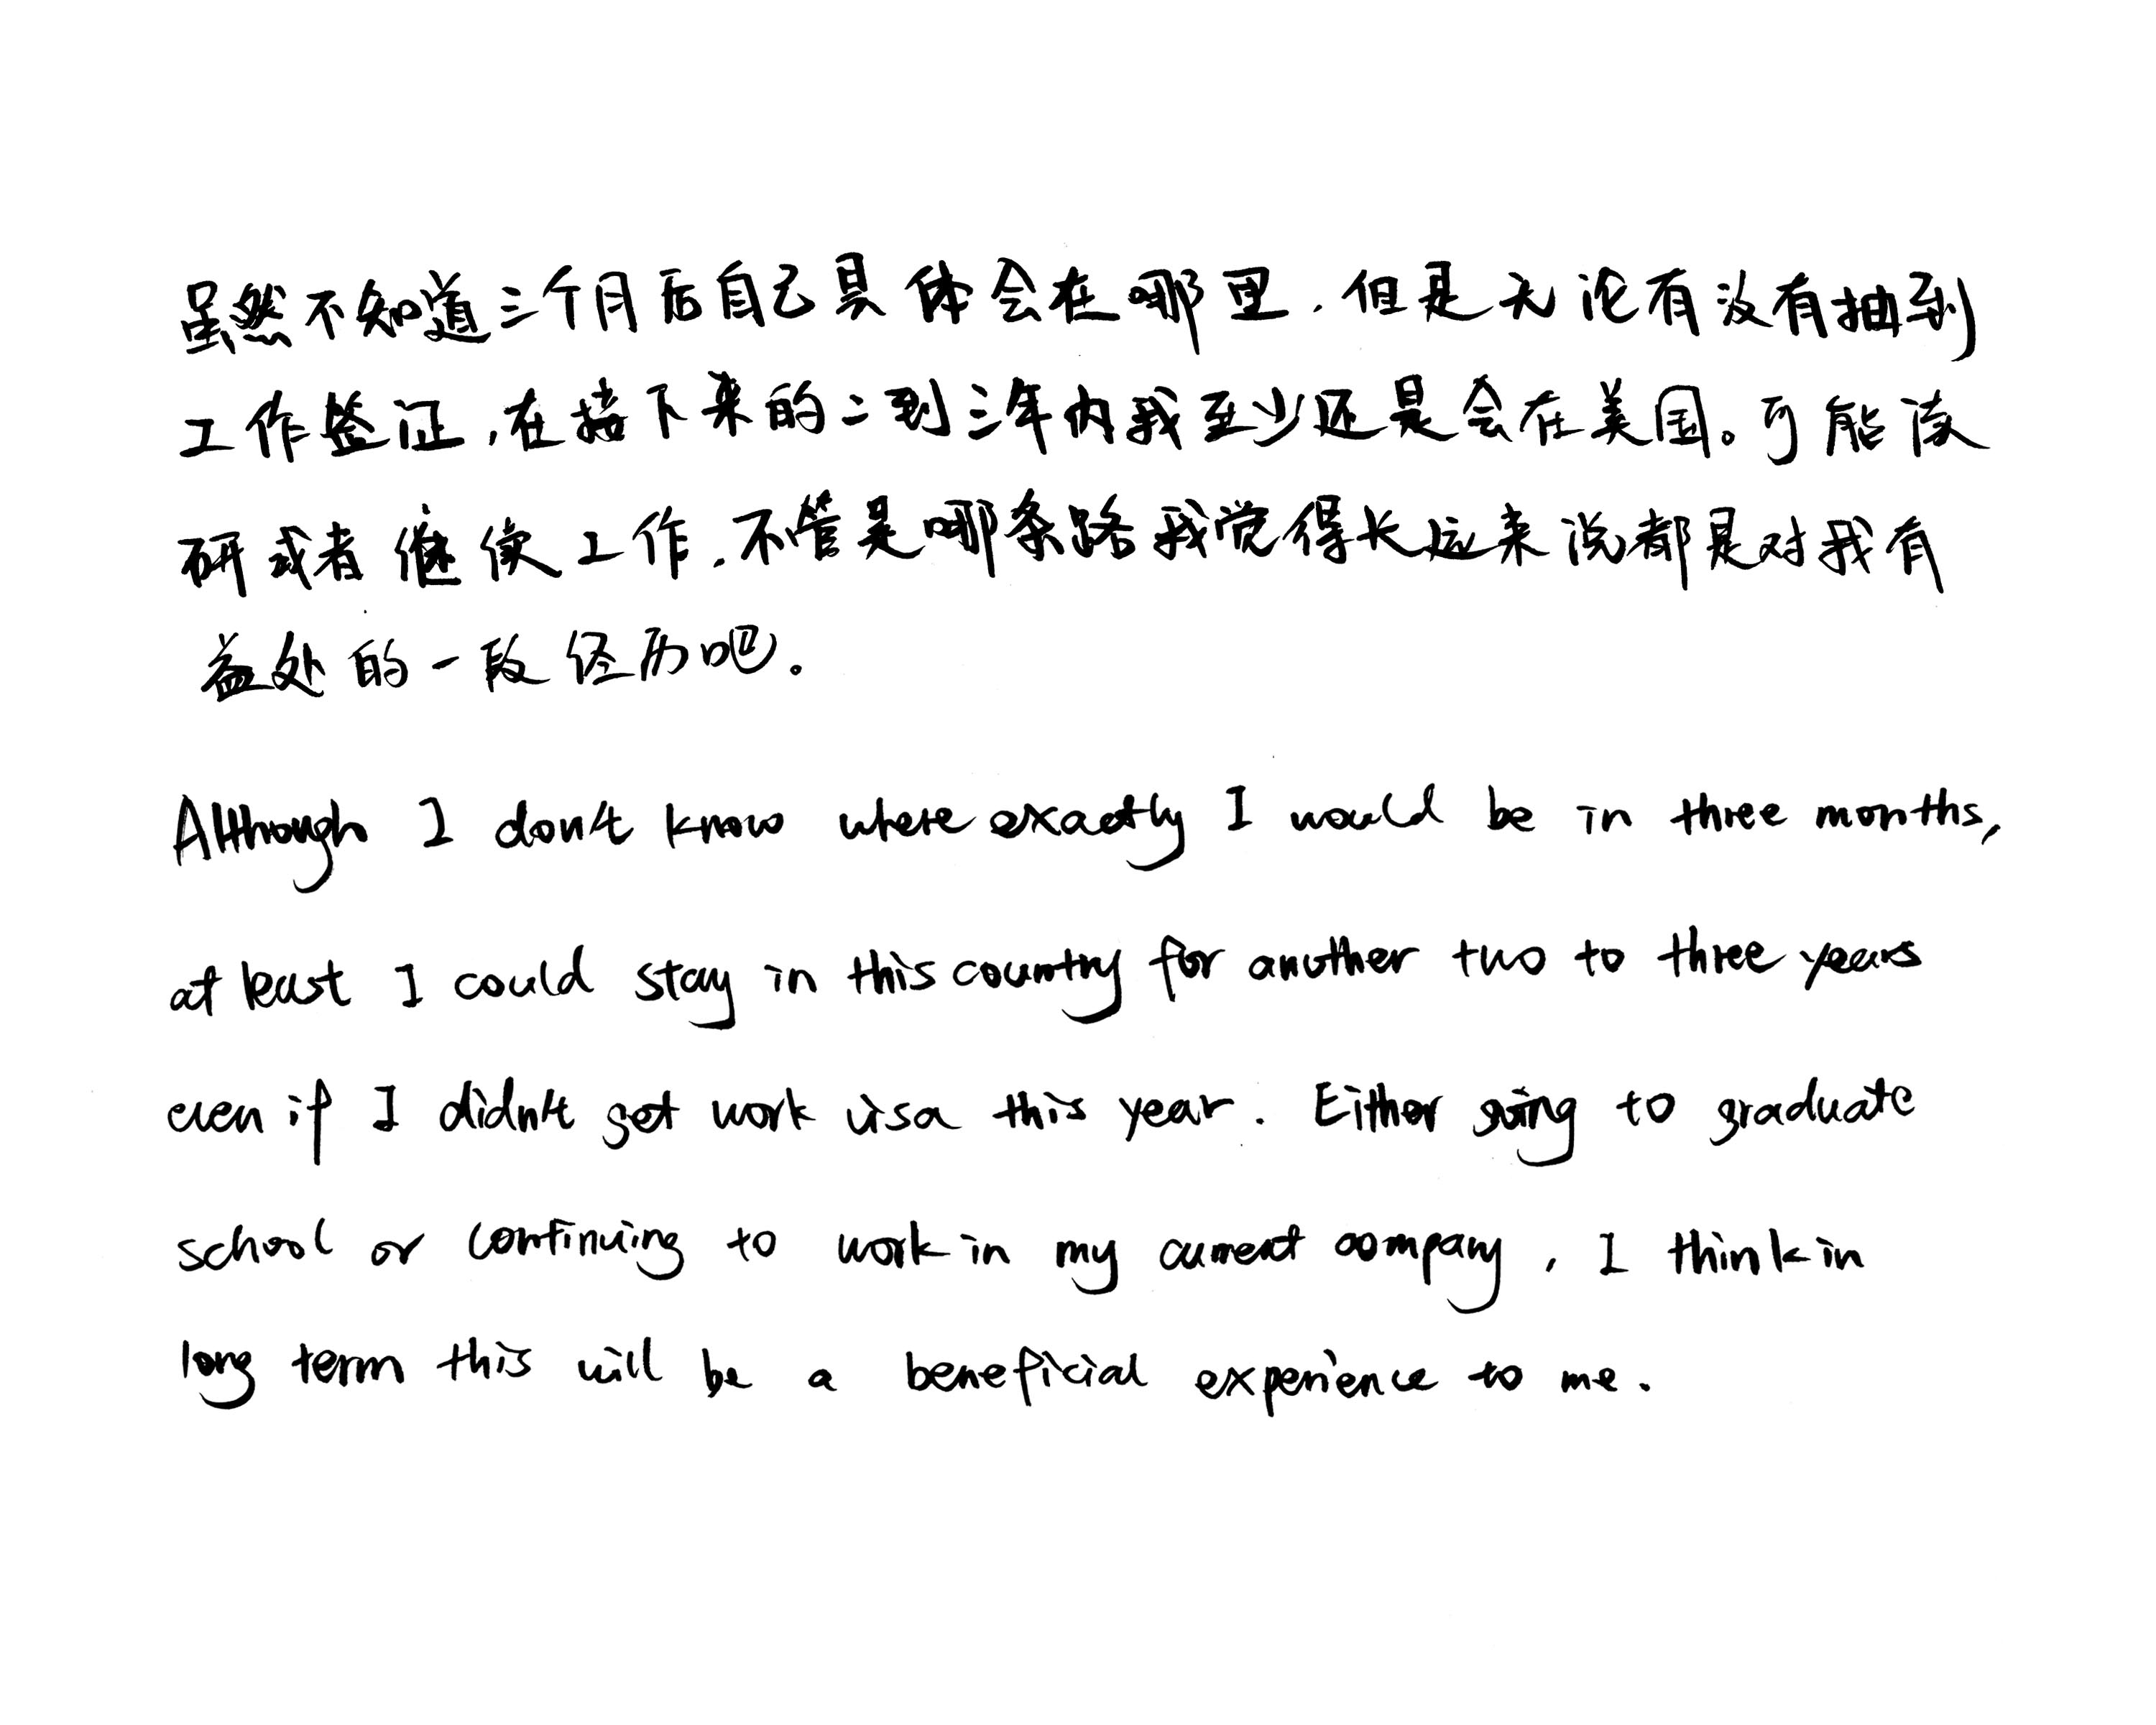 虽然不知道三个月后自己具体会在哪里，但是无论有没有抽到
工作签证，在接下来的二到三年内我至少还是会在美国。可能读
研或者继续工作，不管是哪条路我觉得长远来说都是对我有
益处的一段经历吧。
Although I don't know where exactly I would be in three months,
at least I could stay in this country for another two to three years
even if I didn't get work visa this year. Either going to graduate
school or continuing to work in my current company, I think in
long term this will be a beneficial experience to me.